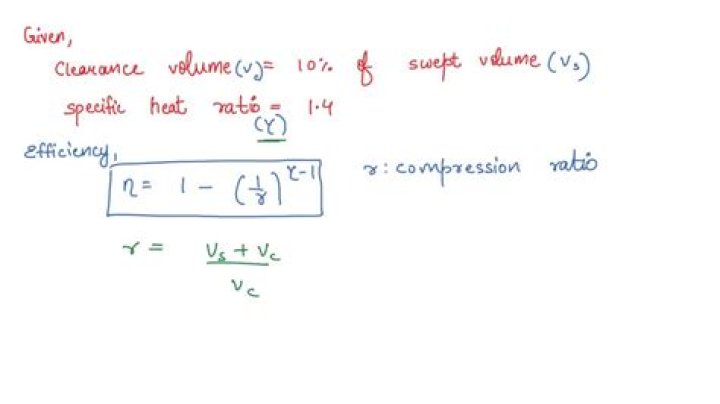 Given,
Clearance volume (V) = 10% of swept volume (Vs)
specific heat ratio = 1.4
(γ)
Efficiency,
η = 1 - (1/r)^γ-1 r: compression ratio
r = Vs + Vc
Vc